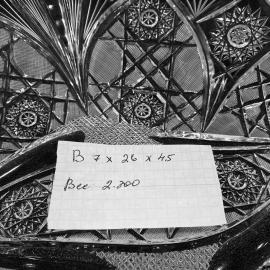 В 7 x 26 x 45
Вес 2.200